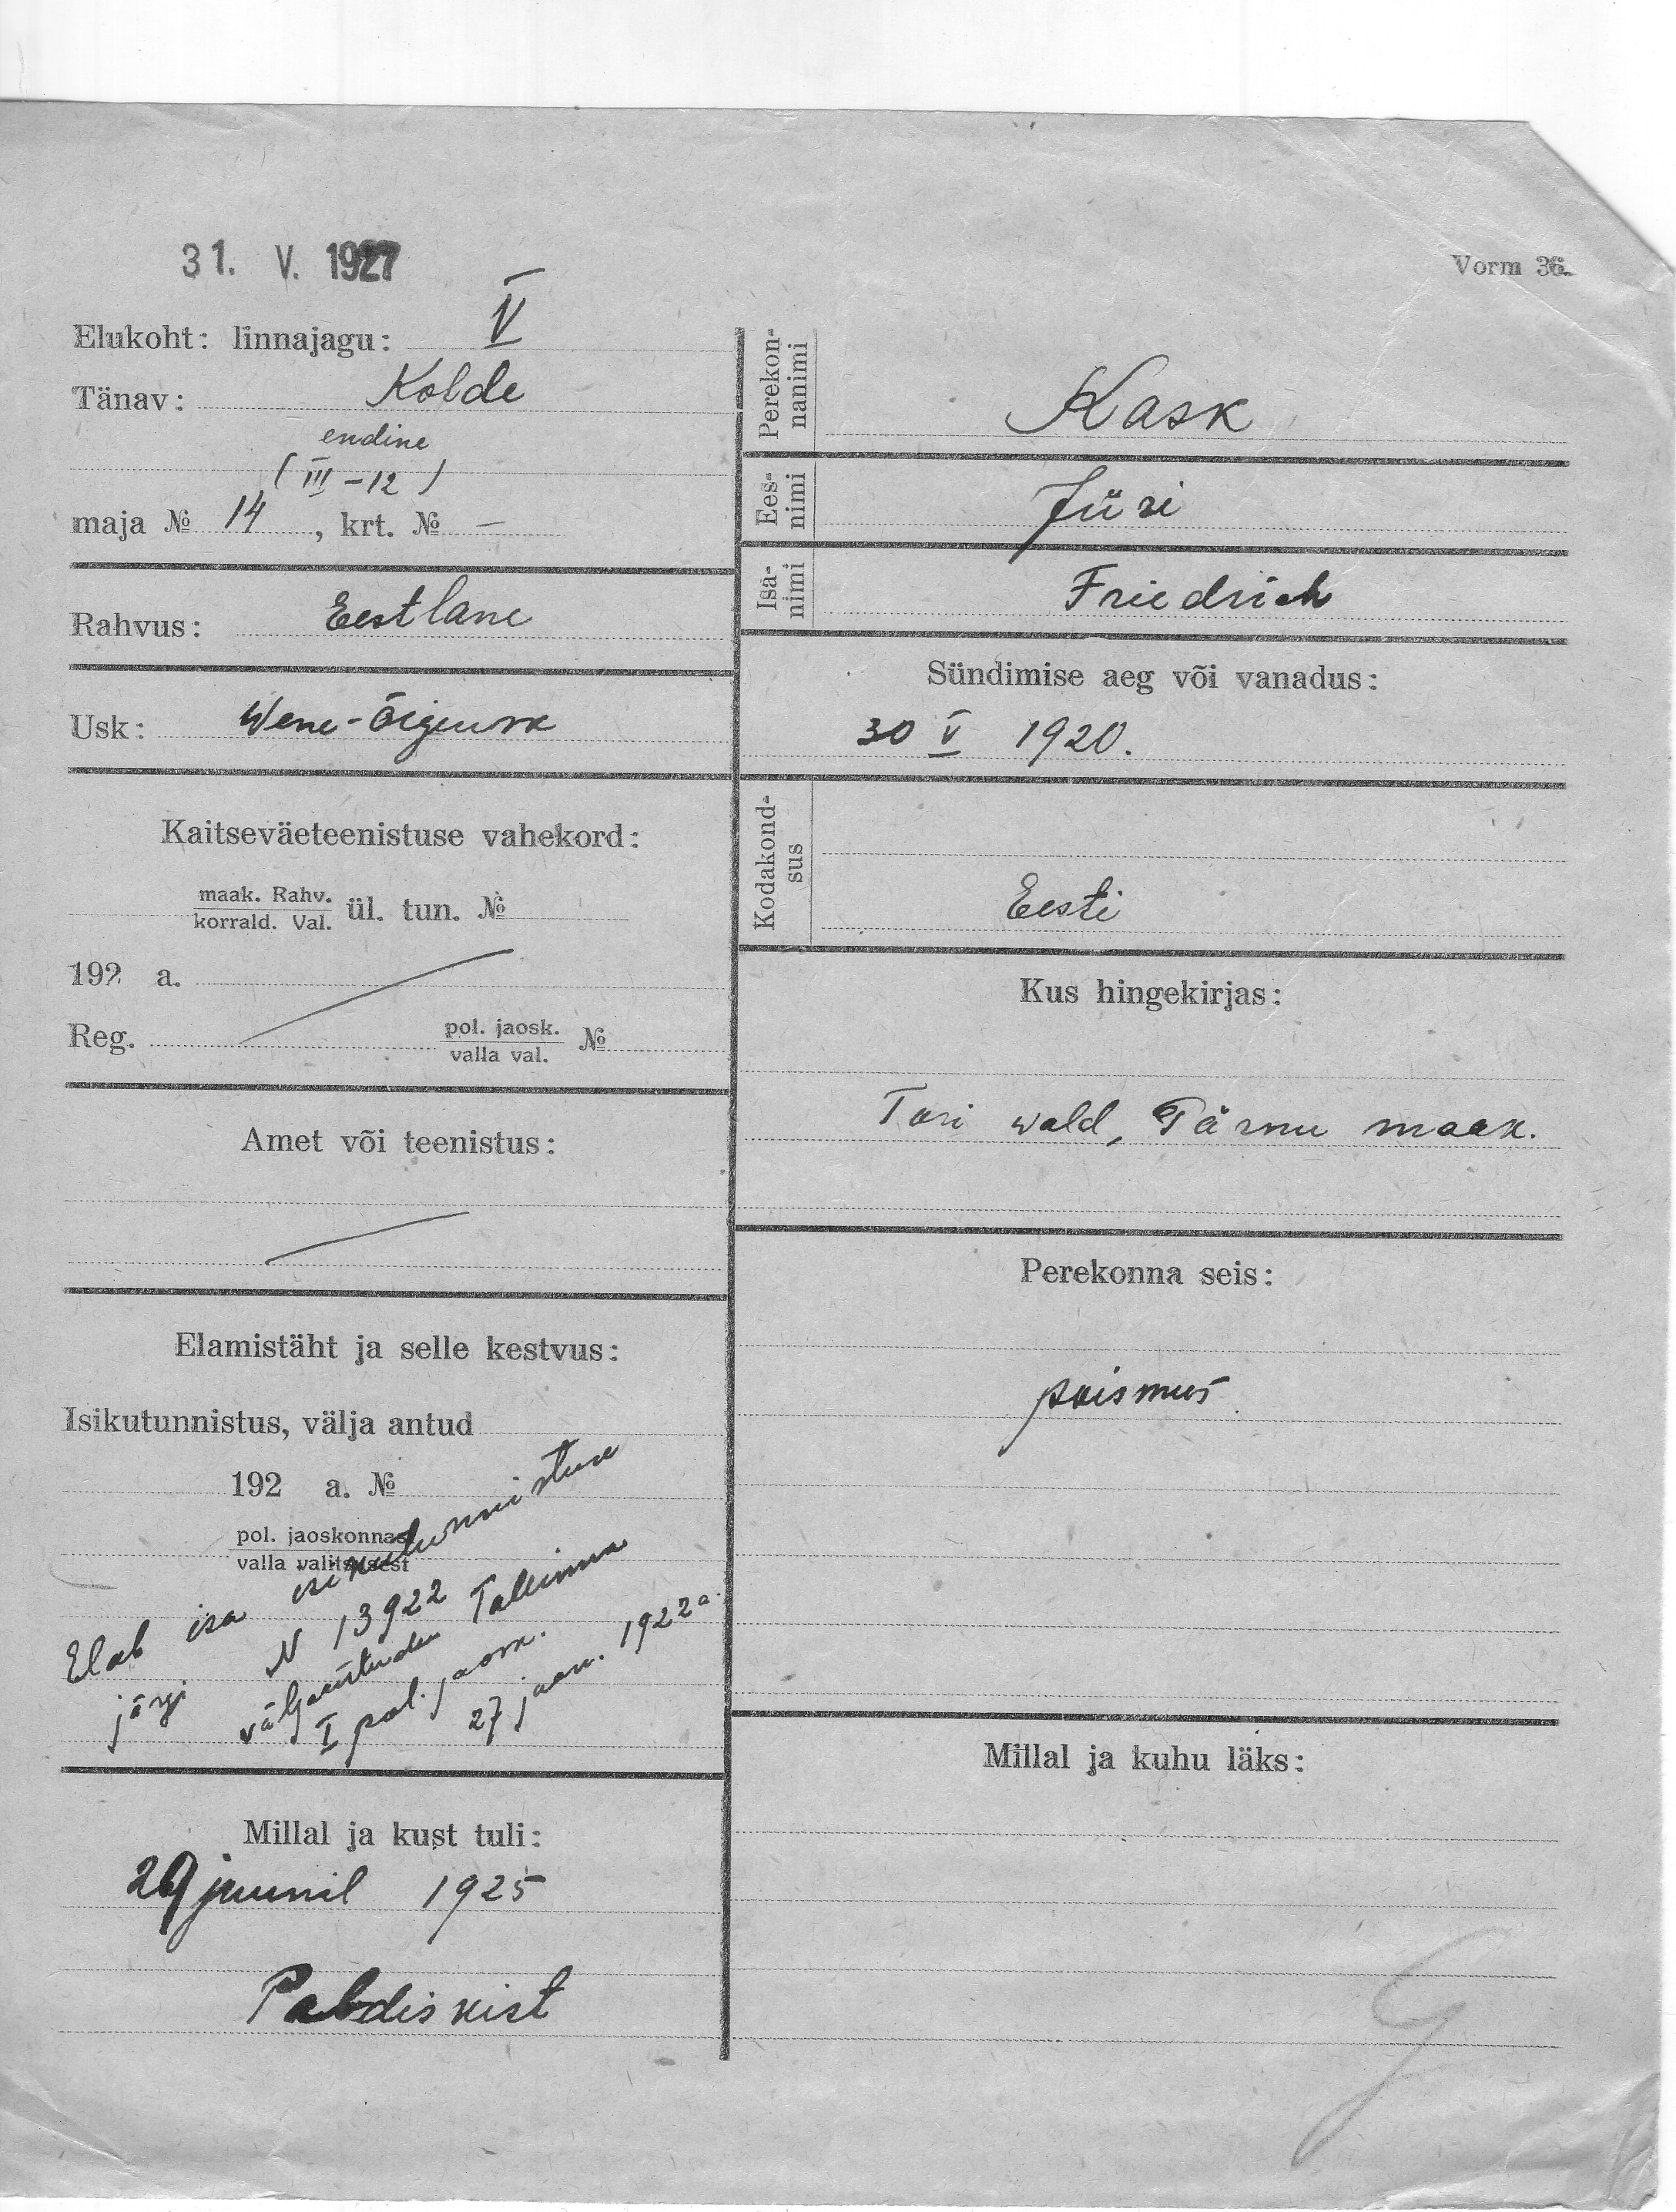 31. V. 1927
Vorm 36.
Elukoht: linnajagu: V
Tänav: Kolde
endine
(III – 12)
maja № 14, krt. № —
Rahvus: Eestlane
Usk: Wene-õigeusk
Kaitseväeteenistuse vahekord:
maak. Rahv.
korrald. Val. ül. tun. №
192 a.
Reg. pol. jaosk.
valla val. №
Amet või teenistus:
Elamistäht ja selle kestvus:
Isikutunnistus, välja antud
192 a. №
pol. jaoskonnast
valla valitsusest
Elab isa isikutunnistuse
järgi N 13922
väljaantudu Tallinna
I pol. jaosk.
27 jaan. 1922 a.
Millal ja kust tuli:
29 juunil 1925
Paldiskist
Perekon-
nanimi
Kask
Ees-
nimi
Jüri
Isa-
nimi
Friedrich
Sündimise aeg või vanadus:
30 V 1920.
Kodakond-
sus
Eesti
Kus hingekirjas:
Tori wald, Pärnu maak.
Perekonna seis:
poismees
Millal ja kuhu läks: